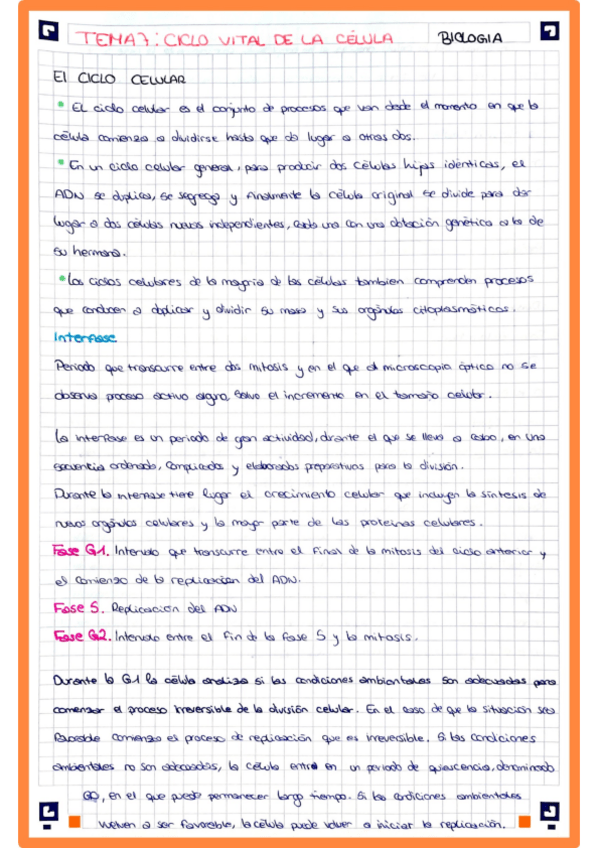 TEMA 7: CICLO VITAL DE LA CÉLULA
BIOLOGIA
El CICLO CELULAR
• EL ciclo celular es el conjunto de procesos que van desde el momento en que la
célula comienza a dividirse hasta que da lugar a otras dos.
• En un ciclo celular general, para producir dos células hijas idénticas, el
ADN se duplica, se segrega y finalmente la célula original se divide para dar
lugar a dos células nuevas independientes, cada una con una dotación genética a la de
su hermana.
• Los ciclos celulares de la mayoria de las células tambien comprenden procesos
que conducen a duplicar y dividir su masa y sus orgánulos citoplasmáticos.
Interfase
Periodo que transcurre entre dos mitosis y en el que al microscopio óptico no se
observa proceso activo alguno, salvo el incremento en el tamaño celular.
La interfase es un periodo de gran actividad, durante el que se lleva a cabo, en una
secuencia ordenada, complicados y elaborados preparativos para la división.
Durante la interfase tiene lugar el crecimiento celular que incluyen la síntesis de
nuevos orgánulos celulares y la mayor parte de las proteinas celulares.
Fase G1. Intervalo que transcurre entre el final de la mitosis del ciclo anterior y
el comienzo de la replicación del ADN.
Fase S. Replicación del ADN
Fase G2. Intervalo entre el fin de la fase S y la mitosis.
Durante la G1 la célula analiza si las condiciones ambientales son adecuadas para
comenzar el proceso irreversible de la división celular. En el caso de que la situación sea
favorable comienza el proceso de replicación que es irreversible. Si las condiciones
ambientales no son adecuadas, la célula entra en un periodo de quiescencia, denominado
G0, en el que puede permanecer largo tiempo. Si las condiciones ambientales
vuelven a ser favorables, la célula puede volver a iniciar la replicación.